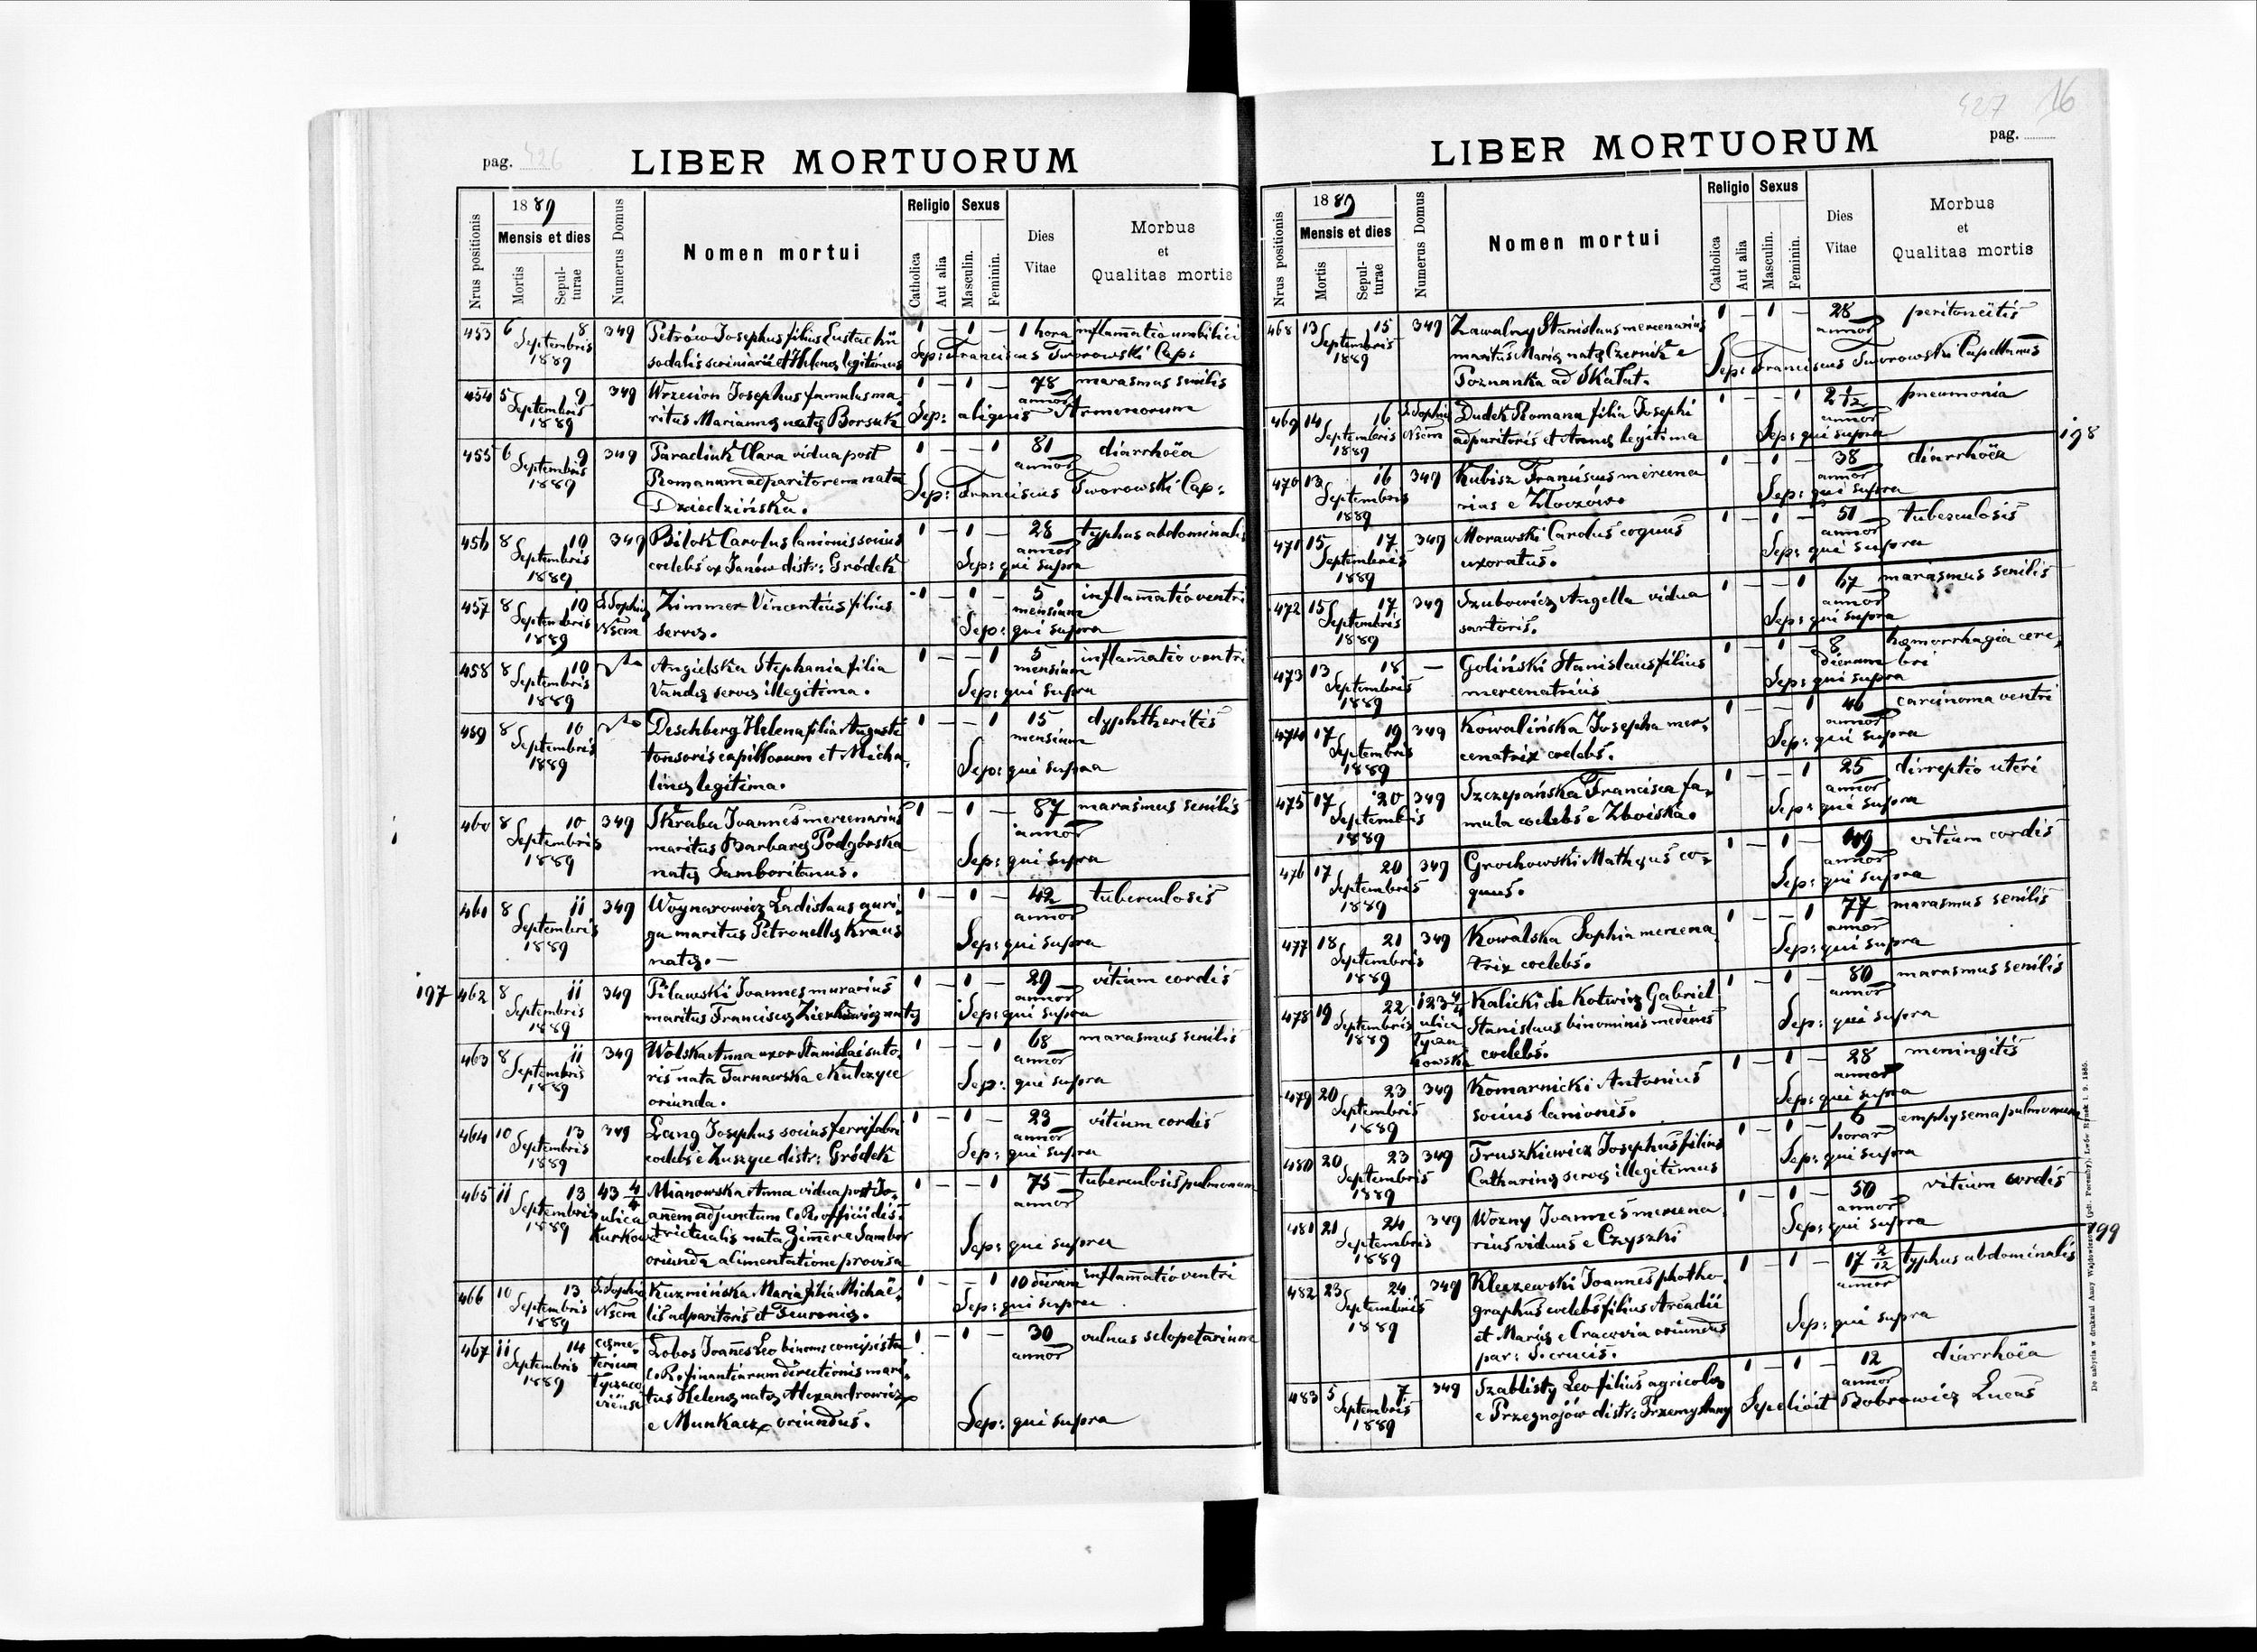 pag. 426
LIBER MORTUORUM
Nrus positionis
1889
Mensis et dies
Mortis
Sepulturae
Numerus Domus
Nomen mortui
Religio
Catholica
Aut alia
Sexus
Masculin.
Feminin.
Dies
Vitae
Morbus
et
Qualitas mortis
453 6 8 349 Petrów Josephus filius Eustachii 1 – 1 – 1 hora inflam̄atio umbilici
Septembris sodalis scriniarii et Helenę legitimus Sep: Franciscus Tworowski Cap:
1889
454 5 9 349 Wrzecion Josephus famulus ma- 1 – 1 – 78 marasmus senilis
Septembris ritus Mariannę natę Borsuk Sep: aligenis Armenorum
1889 annor
455 6 9 349 Paradiuk Clara vidua post 1 – – 1 81 diarrhoëa
Septembris Romanum adparitorem nata annor
1889 Dziedzińska. Sep: Franciscus Tworowski Cap:
456 8 10 349 Bilok Carolus lanionis socius 1 – 1 – 28 typhus abdominalis
Septembris coelebs ex Janów distr: Gródek annor
1889 Sep: qui supra
457 8 10 S. Sophię Zimmer Vincentius filius 1 – 1 – 5 inflam̄atio ventri
Septembris Nscm servę. mensium
1889 Sep: qui supra
458 8 10 Angielska Stephania filia 1 – – 1 5 inflam̄atio ventri
Septembris Vandę servę illegitima. mensium
1889 Sep: qui supra
459 8 10 Deschberg Helena filia Augusti 1 – – 1 15 dyphtheritis
Septembris tonsoris capillorum et Micha- mensium
1889 linę legitima. Sep: qui supra
460 8 10 349 Skraba Joannes mercenarius 1 – 1 – 87 marasmus senilis
Septembris maritus Barbarę Podgórska annor
1889 natę Samboritanus. Sep: qui supra
461 8 11 349 Woynarowicz Ladislaus auri- 1 – 1 – 42 tuberculosis
Septembris ga maritus Petronellę Kraus annor
1889 natę. – Sep: qui supra
197
462 8 11 349 Pilawski Joannes murarius 1 – 1 – 29 vitium cordis
Septembris maritus Franciscę natę annor
1889 Sep: qui supra
463 8 11 349 Wolska Anna uxor Stanislai suto- 1 – – 1 68 marasmus senilis
Septembris ris nata Tarnawska e Kulczyce annor
1889 oriunda. Sep: qui supra
464 10 13 349 Lang Josephus socius ferrifabri 1 – 1 – 23 vitium cordis
Septembris coelebs e Zuszyce distr: Gródek annor
1889 Sep: qui supra
465 11 13 43 4/4 Mianowska Anna vidua post Jo- 1 – – 1 75 tuberculosis pulmonum
Septembris ulica anem adjunctum C. R. officii dis- annor
1889 Kurkowa trictualis nata Zim̄er e Sambor
oriunda alimentatione provisa Sep: qui supra
466 10 13 S. Sophię Kuzmińska Maria filia Michaë- 1 – – 1 10 dierum inflam̄atio ventri
Septembris Nscm lis adparitoris et Feuronię. Sep: qui supra
1889
467 11 14 cęme- Lobos Joan̄es Leo binom: concipista 1 – 1 – 30 vulnus sclopetarium
Septembris terium C. R. finantiarum directionis mari- annor
1889 Łyczaco- tus Helenę natę Alexandrowicz
viense e Munkacz oriundus. Sep: qui supra
427 16
LIBER MORTUORUM
pag.
Nrus positionis
1889
Mensis et dies
Mortis
Sepulturae
Numerus Domus
Nomen mortui
Religio
Catholica
Aut alia
Sexus
Masculin.
Feminin.
Dies
Vitae
Morbus
et
Qualitas mortis
468 13 15 349 Zawalny Stanislaus mercenarius 1 – 1 – 28 peritonëitis
Septembris maritus Marię natę Czernik e annor
1889 Poznanka ad Skałat. Sep: Franciscus Tworowski Capellanus
469 14 16 S. Sophię Dudek Romana filia Josephi 1 – – 1 2 1/12 pneumonia
Septembris Nscm adparitoris et Annę legitima annor
1889 Sep: qui supra
198
470 13 16 349 Kubisz Franciscus mercena 1 – 1 – 38 diarrhoëa
Septembris rius e Złoczów. annor
1889 Sep: qui supra
471 15 17 349 Morawski Carolus coquus 1 – 1 – 51 tuberculosis
Septembris uxoratus. annor
1889 Sep: qui supra
472 15 17 349 Szubowicz Angella vidua 1 – – 1 67 marasmus senilis
Septembris sartoris. annor
1889 Sep: qui supra
473 13 18 – Goliński Stanislaus filius 1 – 1 – 8 hęmorrhagia cere-
Septembris mercenatricis dierum bri
1889 Sep: qui supra
474 17 19 349 Kowalińska Josepha mer- 1 – – 1 46 carcinoma ventri
Septembris cenatrix coelebs. annor
1889 Sep: qui supra
475 17 20 349 Szczepańska Francisca fa- 1 – – 1 25 dirreptio uteri
Septembris mula coelebs e Zboiska. annor
1889 Sep: qui supra
476 17 20 349 Grochowski Mathęus co- 1 – 1 – 49 vitium cordis
Septembris quus. annor
1889 Sep: qui supra
477 18 21 349 Kowalska Sophia mercena 1 – – 1 77 marasmus senilis
Septembris trix coelebs. annor
1889 Sep: qui supra
478 19 22 123 4/4 Kalicki de Kotwicz Gabriel 1 – 1 – 80 marasmus senilis
Septembris ulica Stanislaus binominis medicus annor
1889 Łyczakowska coelebs. Sep: qui supra
479 20 23 349 Komarnicki Antonius 1 – 1 – 28 meningitis
Septembris socius lanionis. annor
1889 Sep: qui supra
480 20 23 349 Truszkiewicz Josephus filius 1 – 1 – 6 emphysema pulmonum
Septembris Catharinę servę illegitimus horar
1889 Sep: qui supra
481 21 24 349 Wozny Joannes mercena 1 – 1 – 50 vitium cordis
Septembris rius viduus e Czyszki annor
1889 Sep: qui supra
199
482 23 24 349 Kleczewski Joannes photho- 1 – 1 – 17 2/12 typhus abdominalis
Septembris graphus coelebs filius Arcadii annor
1889 et Marię e Cracovia oriundus
par: S. crucis. Sep: qui supra
483 5 7 349 Szablisty Leo filius agricolę 1 – 1 – 12 diarrhoëa
Septembris e Przegnojów distr: Przemyslany annor
1889 Sepelivit Bobrowicz Lucas
Do nabycia w drukarni Anny Wajdowiczowej (pdt. Poremby), Lwów Rynek l. 9. 1885.